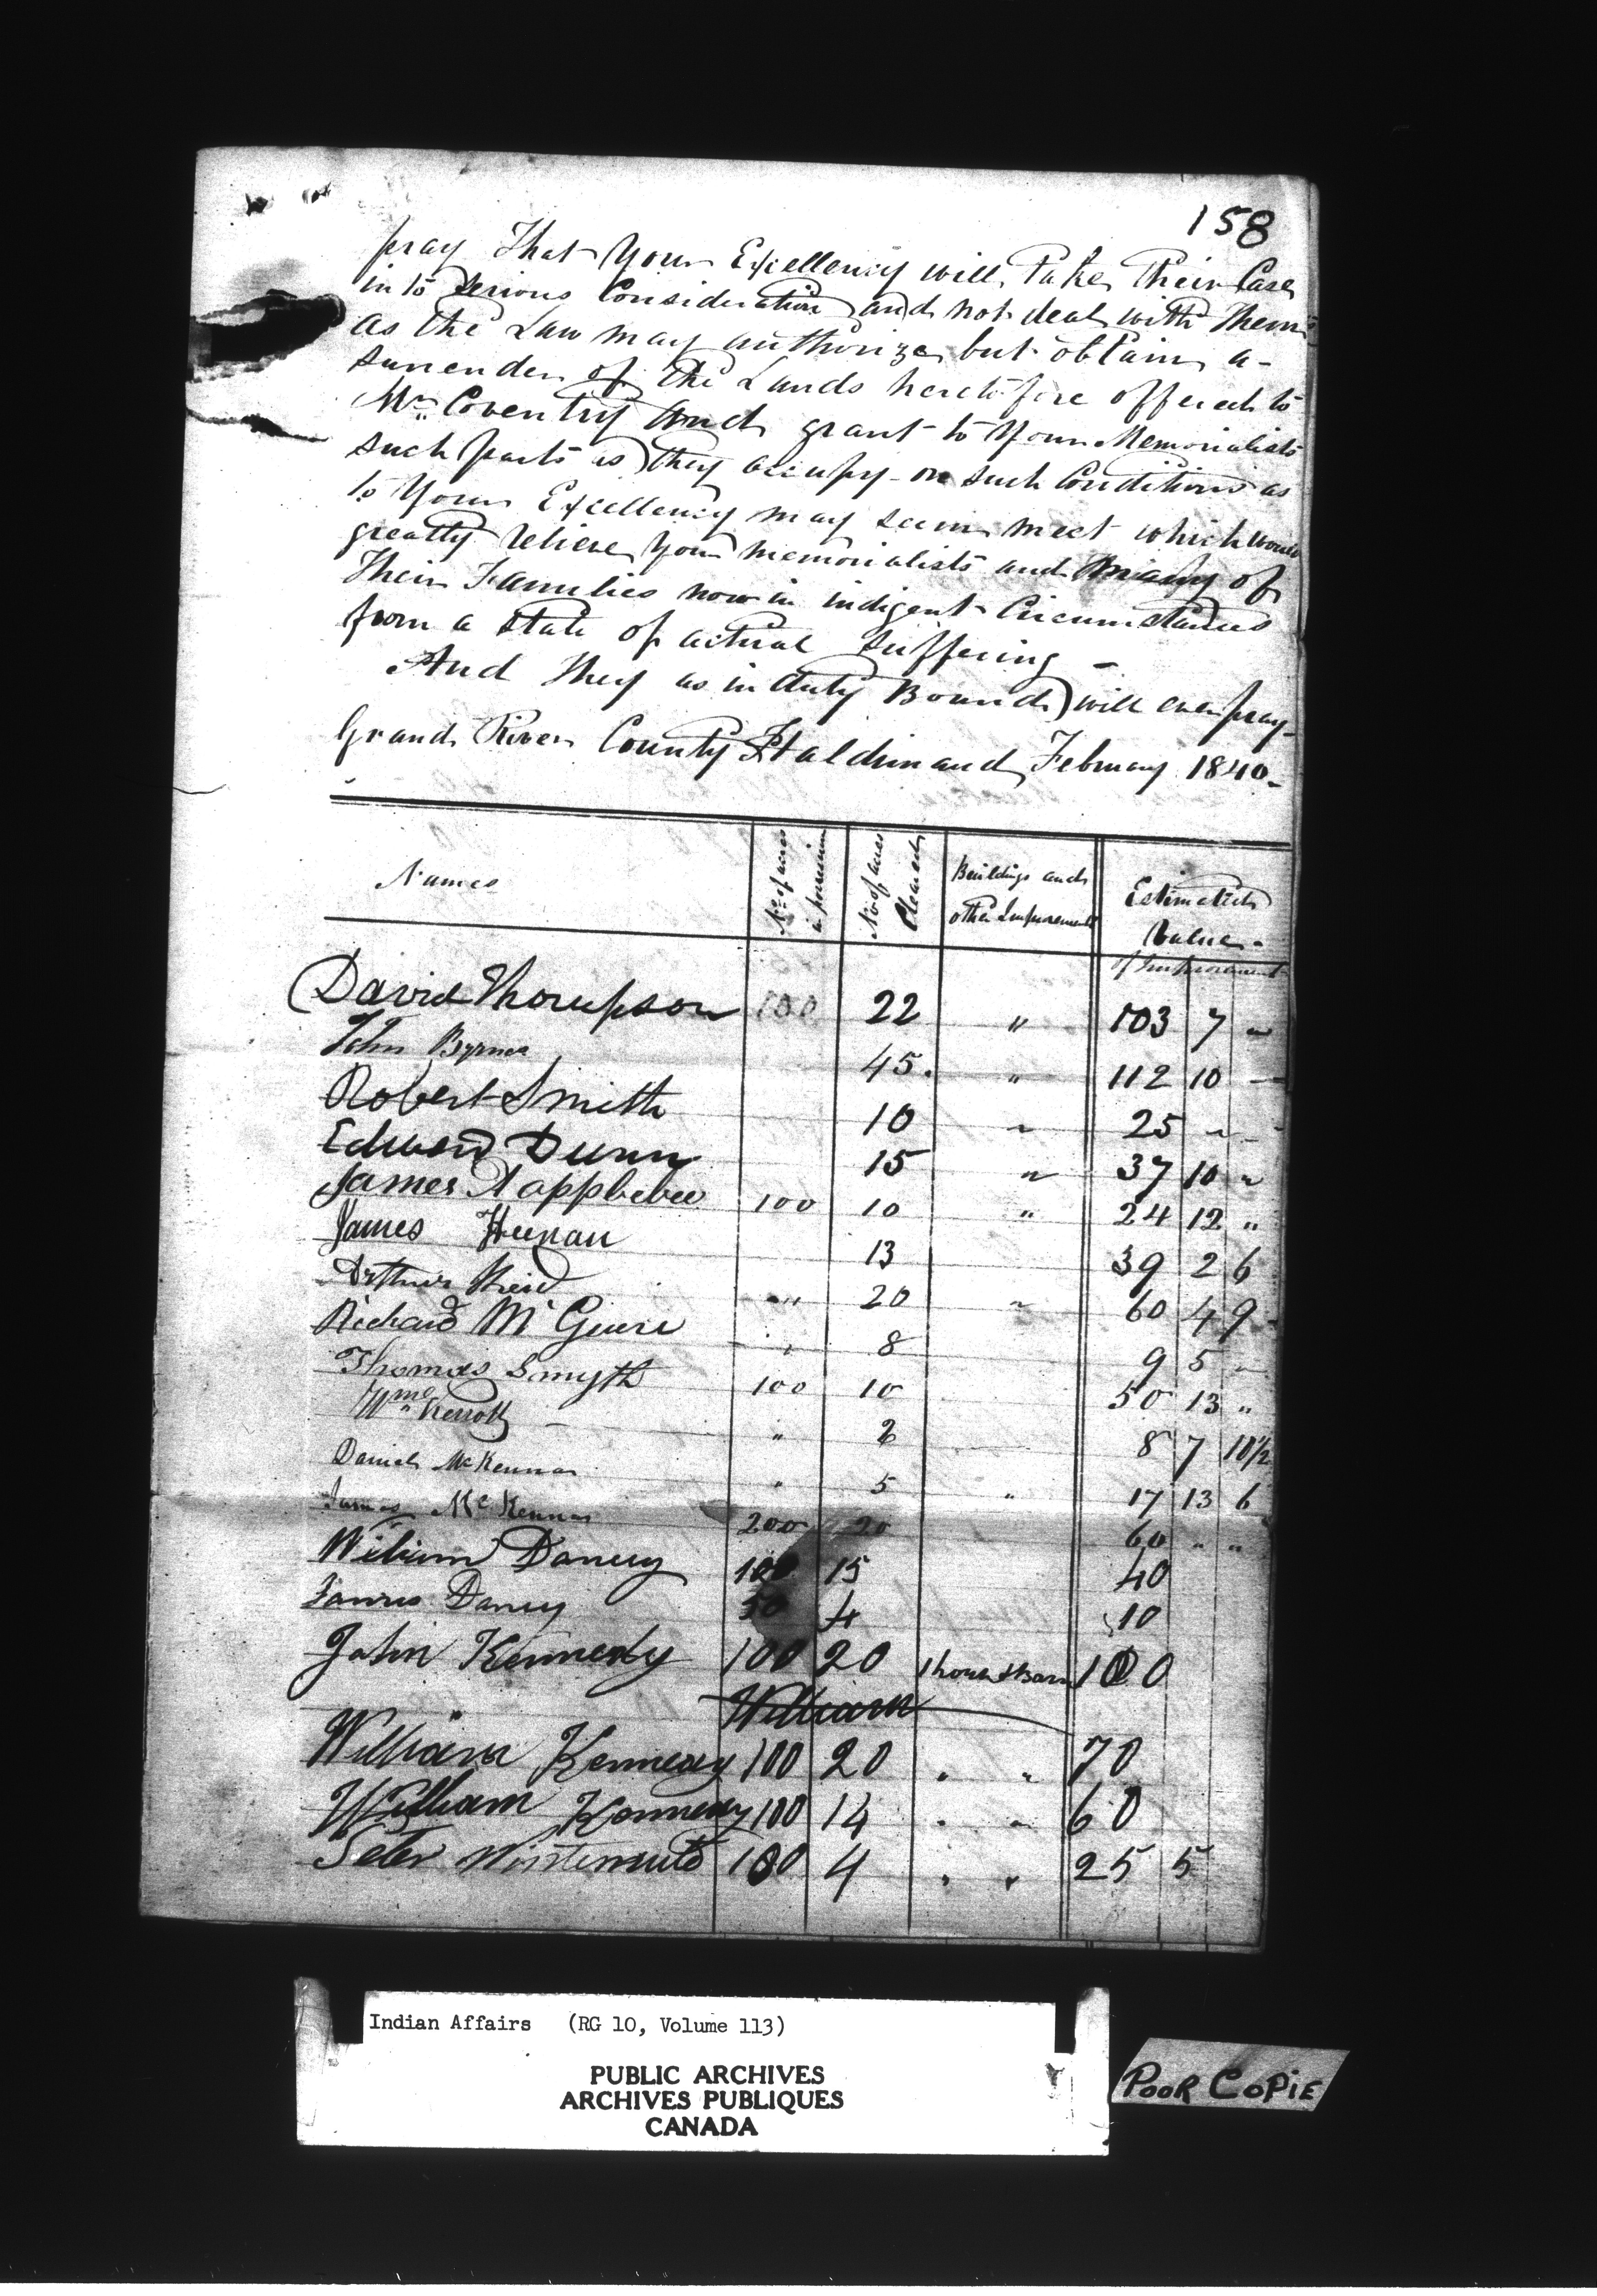 158
pray That Your Excellency will Take Their Case
in to Serious Consideration and not deal with Them
as the Law may authorize but obtain a
surrender of the Lands heretofore offered to
Mr Coventry and grant to Your Memorialists
such parts as they occupy on such Conditions as
to Your Excellency may seem meet which would
greatly relieve your memorialists and many of
Their Families now in indigent Circumstances
from a state of actual suffering -
And They as in duty Bound will ever pray
Grand River County Haldimand February 1840
Names No of acres in possession No of acres Cleared Buildings and other Improvements Estimated Value of Improvement
David Thompson 100 22 " 103 7 "
John Byrne 45. " 112 10 —
Robert Smith 10 " 25 " -
Edward Dunn 15 " 37 10 "
James Applebee 100 10 " 24 12 "
James Heenan 13 39 2 6
Arthur Reid " 20 " 60 4 9
Richard McGuire " 8 9 5 "
Thomas Smyth 100 10 50 13 "
Wm " 2 8 7 10½
Daniel McKenna " 5 " 17 13 6
James McKenna 200 20 60 " "
William Dancy 100 15 40
James Dancy 50 4 10
John Kennedy 100 20 1 house & Barn 100
William
William Kennedy 100 20 " " 70
William Kennedy 100 14 " " 60
Peter 100 4 " " 25 5
Indian Affairs (RG 10, Volume 113)
PUBLIC ARCHIVES
ARCHIVES PUBLIQUES
CANADA
POOR COPIE